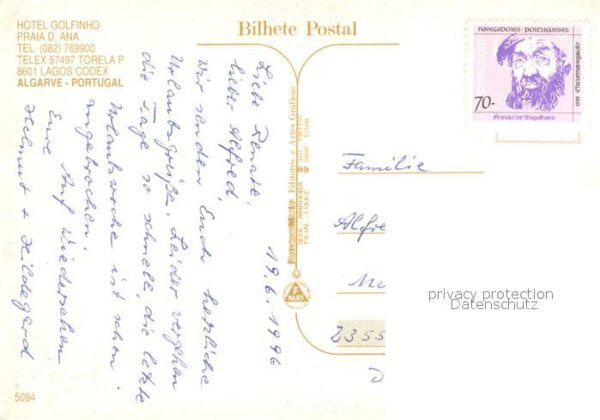 HOTEL GOLFINHO
PRAIA D. ANA
TEL (082) 769900
TELEX 57497 TORELA P
8601 LAGOS CODEX
ALGARVE - PORTUGAL
Bilhete Postal
NAVEGADORES PORTUGUESES
PORTUGAL
70-
Fernão de Magalhães
19.6.1996
Liebe Renate,
lieber Alfred,
wir senden Euch herzliche
Urlaubsgrüße. Leider vergehen
die Tage so schnell, die letzte
Urlaubswoche ist schon
angebrochen.
Auf Wiedersehen
Eure
Helmut + Hildegard
Editores e Artes Gráficas
Familie
Alfre
Me
2355
D
privacy protection
Datenschutz
5094